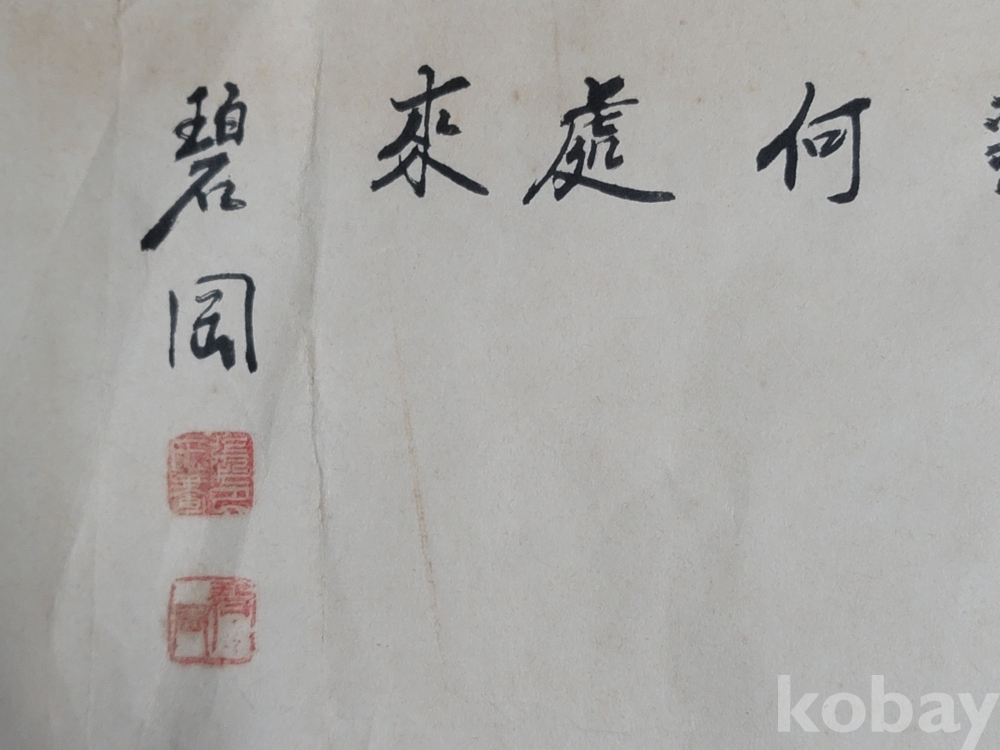 何處來
碧岡
kobay